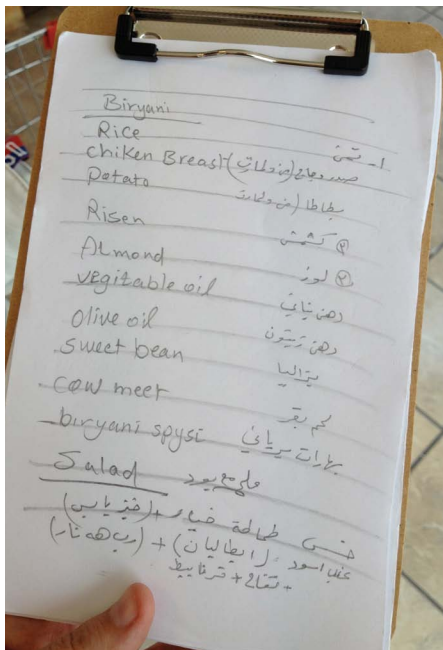 Biryani
Rice ١- تمن
chiken Breast صدر دجاج
Potato بطاطا
Risen كشمش
Almond لوز
vegitable oil دهن نباتي
olive oil دهن زيتون
sweet bean بزاليا
cow meet لحم بقر
biryani spysi بهارات برياني
Salad ملح مع يود
خس طماطة خيار + (خبز يابس)
عنب اسود (ايطاليان) +
+ تفاح +